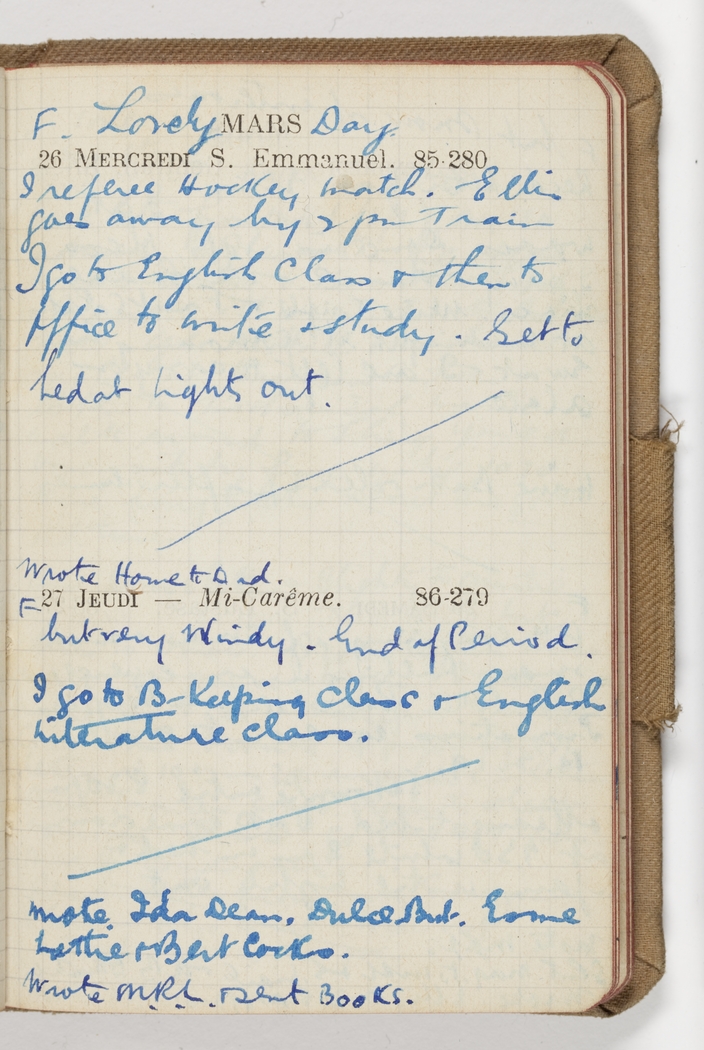 F. Lovely MARS Day.
26 MERCREDI S. Emmanuel. 85-280
I referee Hockey match. Ellis
goes away by 2 pm Train
I go to English Class & then to
Office to write & study. Get to
bed at Lights out.
Wrote Home to Dad.
F 27 JEUDI — Mi-Carême. 86-279
but very Windy. End of Period.
I go to B-Keeping Class & English
Literature Class.
Wrote Ida Dean, Dulcie But. Esme
Lottie & Bert Cocks.
Wrote M.R.L. & sent Books.